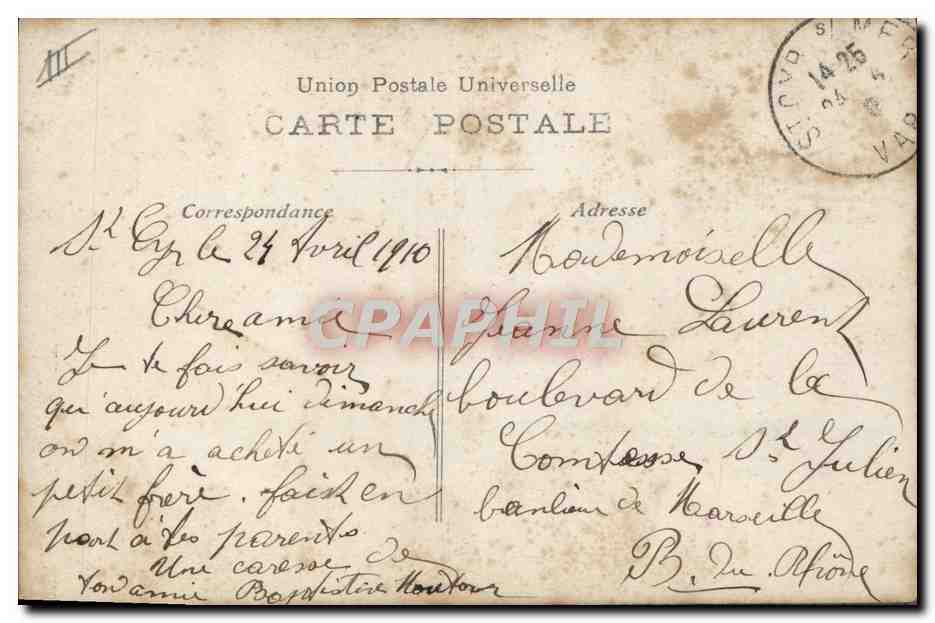 III
ST CYR S/ MER
14-25
24 4
VAR
Union Postale Universelle
CARTE POSTALE
Correspondance
St Cyr le 24 Avril 1910
Chere amie
Je te fais savoir
qu'aujourd'hui dimanche
on m'a acheté un
petit frère. fais en
part à tes parents
Une caresse de
ton amie Baptistine
Adresse
Mademoiselle
Jeanne Laurent
boulevard de la
Comtesse St Julien
banlieu de Marseille
B. du Rhône
CPAPHIL